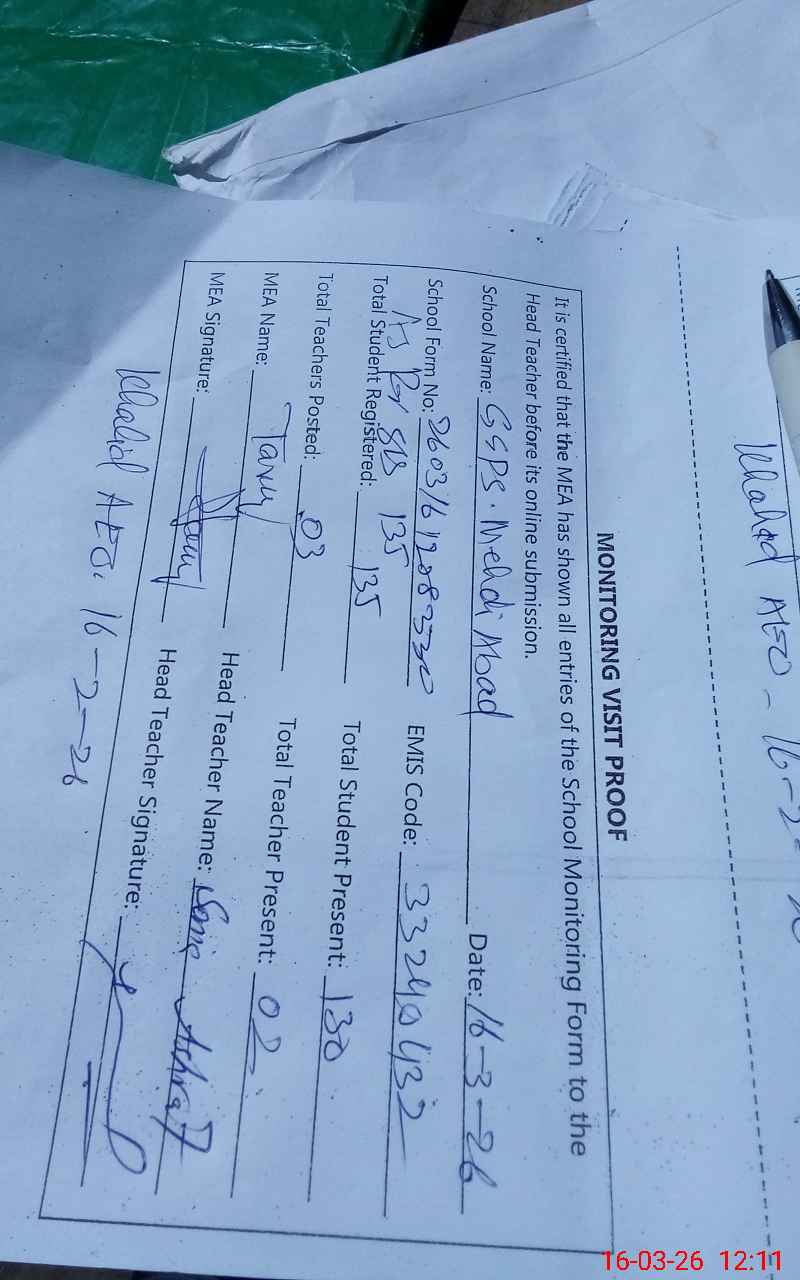 Khalid AEO - 16-2-
MONITORING VISIT PROOF
It is certified that the MEA has shown all entries of the School Monitoring Form to the
Head Teacher before its online submission.
School Name: GGPS. Mehdi Abad Date: 16-3-26
School Form No: EMIS Code: 33240432
As Per SIS 135
Total Student Registered: 135 Total Student Present: 130
Total Teachers Posted: 03 Total Teacher Present: 02
MEA Name: Head Teacher Name: Ashraf
MEA Signature: Head Teacher Signature:
Khalid AEO. 16-2-26
16-03-26 12:11